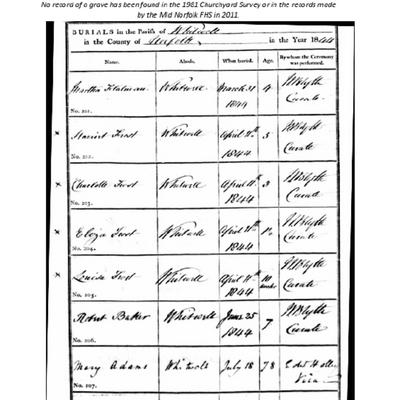 No record of a grave has been found in the 1961 Churchyard Survey or in the records made
by the Mid Norfolk FHS in 2011
BURIALS in the Parish of Whitwell
in the County of Norfolk in the Year 1844
Name. Abode. When buried. Age. By whom the Ceremony was performed.
Martha Whitwell March 31 1844 4 Curate
No. 201.
Harriet Frost Whitwell April 11th 1844 5 Curate
No. 202.
Charlotte Frost Whitwell April 11th 1844 3 Curate
No. 203.
Eliza Frost Whitwell April 11th 1844 Curate
No. 204.
Louisa Frost Whitwell April 11th 1844 10 weeks Curate
No. 205.
Robert Baker Whitwell June 25 1844 7 Curate
No. 206.
Mary Adams Whitwell July 18 78
No. 207.